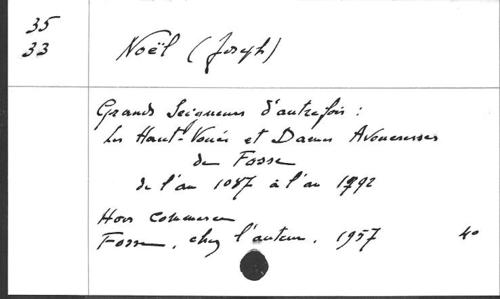 35
33
Noël (Joseph)
Grands Seigneurs d'autrefois :
Les Haut-Voués et Dames Avoueresses
de Fosse
de l'an 1087 à l'an 1792
Hors commerce
Fosse, chez l'auteur, 1957 4°